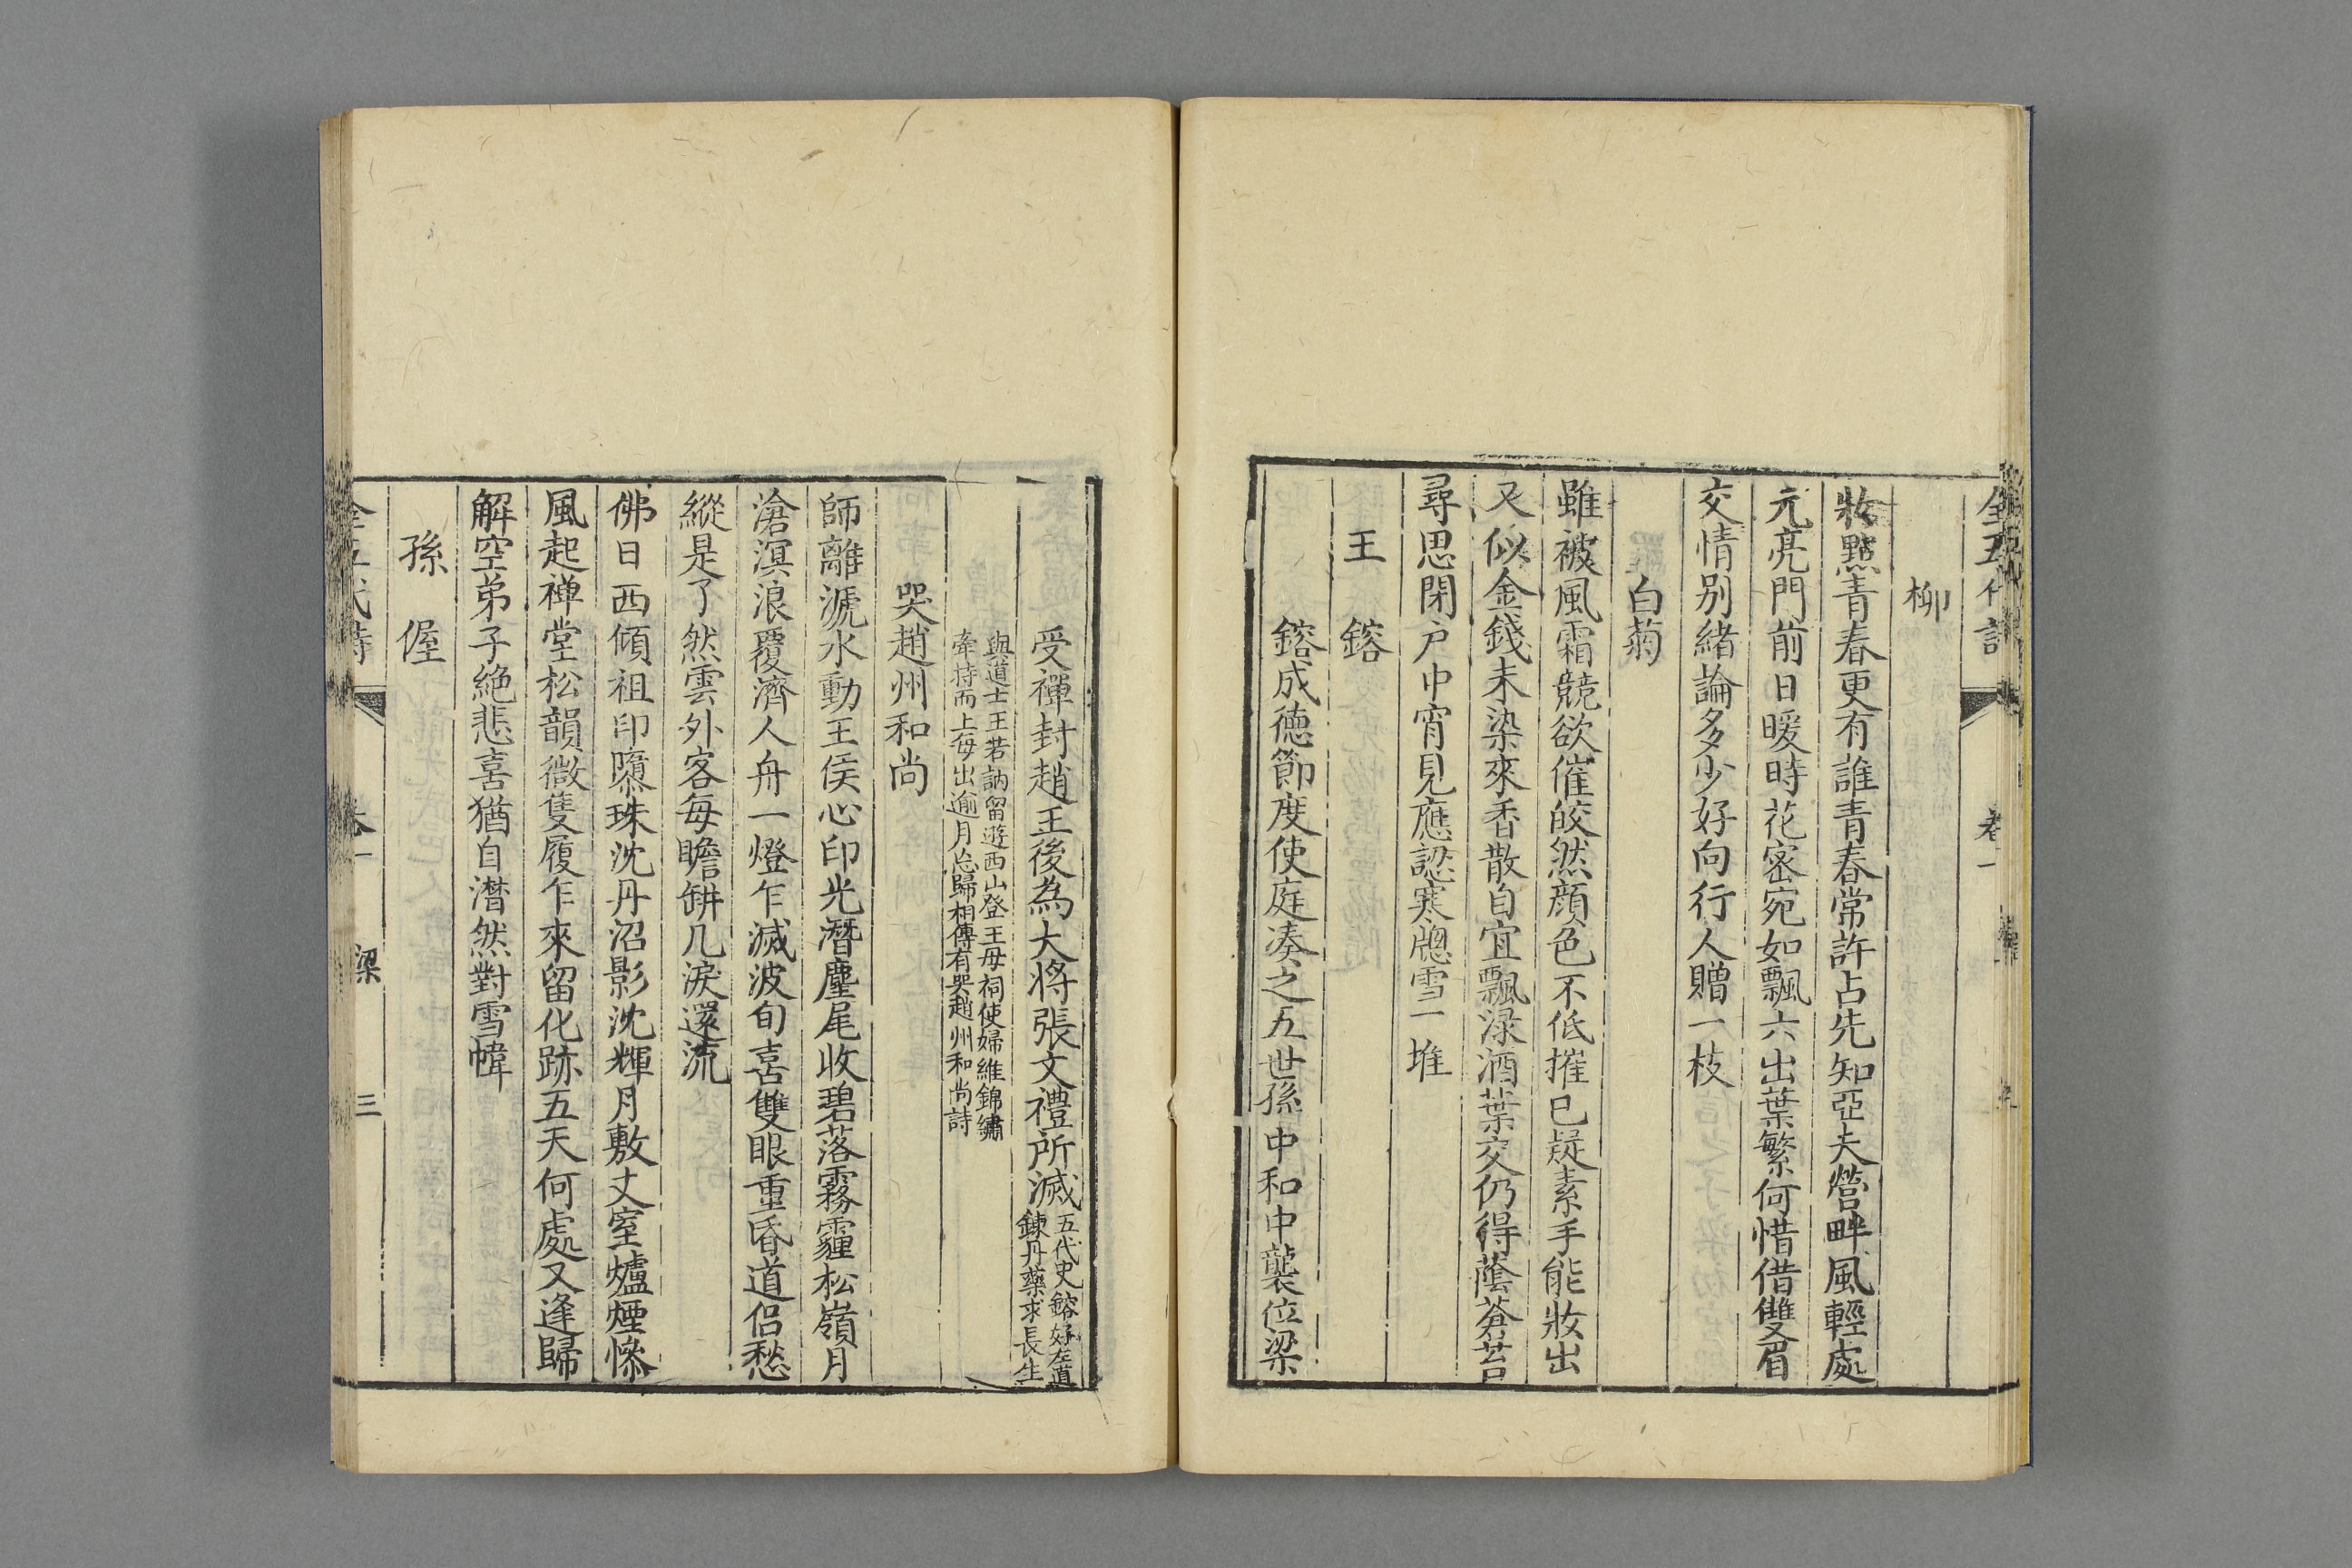 全五代詩 卷一
柳
妝點青春更有誰青春常許占先知亞夫營畔風輕處
元亮門前日暖時花密宛如飄六出葉繁何惜借雙眉
交情别緒論多少好向行人贈一枝
白菊
雖被風霜競欲催皎然顔色不低摧已疑素手能妝出
又似金錢未染來香散自宜飄淥酒葉交仍得蔭蒼苔
尋思閉户中宵見應認寒牕雪一堆
王鎔
鎔成德節度使庭凑之五世孫中和中襲位梁
受禪封趙王後為大將張文禮所滅五代史鎔好左道
鍊丹藥求長生
與道士王若訥留遊西山登王母祠使婦維錦繡
牽持而上每出逾月忘歸相傳有哭趙州和尚詩
哭趙州和尚
師離㴲水動王侯心印光潛麈尾收碧落霧霾松嶺月
滄溟浪覆濟人舟一燈乍滅波旬喜雙眼重昏道侣愁
縱是了然雲外客每瞻缾几淚還流
佛日西傾祖印隳珠沈丹沼影沈輝月敷丈室爐煙慘
風起禅堂松韻微隻履乍來留化跡五天何處又逢歸
解空弟子絶悲喜猶自潸然對雪幃
孫偓
全五代詩 卷一 梁 三